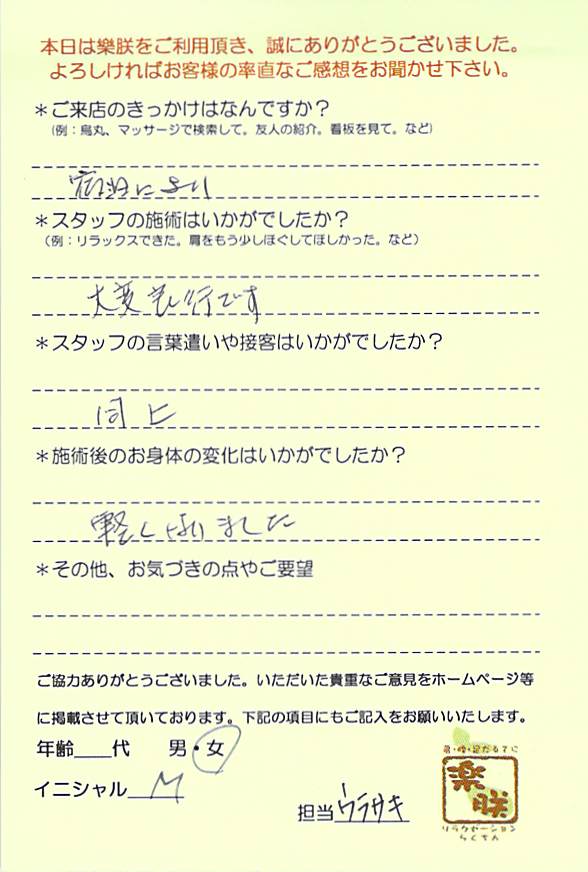 本日は樂朕をご利用頂き、誠にありがとうございました。
よろしければお客様の率直なご感想をお聞かせ下さい。
＊ご来店のきっかけはなんですか？
（例：烏丸、マッサージで検索して。友人の紹介。看板を見て。など）
により
＊スタッフの施術はいかがでしたか？
（例：リラックスできた。肩をもう少しほぐしてほしかった。など）
大変
です
＊スタッフの言葉遣いや接客はいかがでしたか？
同上
＊施術後のお身体の変化はいかがでしたか？
軽くなりました
＊その他、お気づきの点やご要望
ご協力ありがとうございました。いただいた貴重なご意見をホームページ等
に掲載させて頂いております。下記の項目にもご記入をお願いいたします。
年齢　代　男・女
イニシャル M
担当 ウラサキ
楽朕
リラクゼーション
らくちん